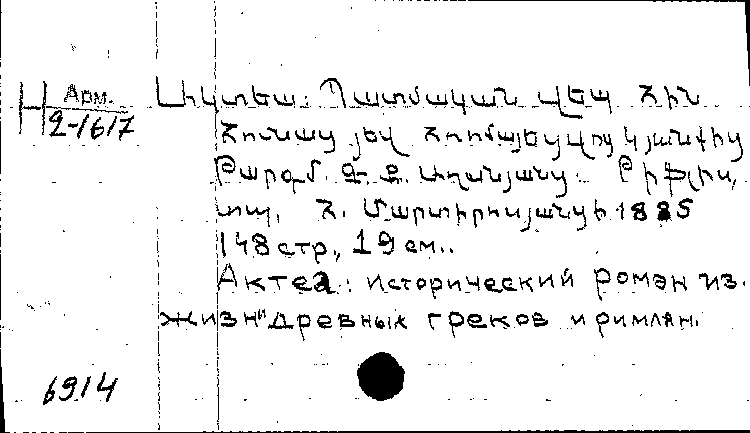 Н Арм. 2-1617
Ակտեա: Պատմական վեպ հին
հունաց յեվ հռոմայեցվոց կյանքից
Թարգմ. Թիֆլիս,
տպ. Հ. Մարտիրոսյանցի 1885
148 стр., 19 см..
Актеа: исторический роман из.
жизни древных греков и римлян.
6914